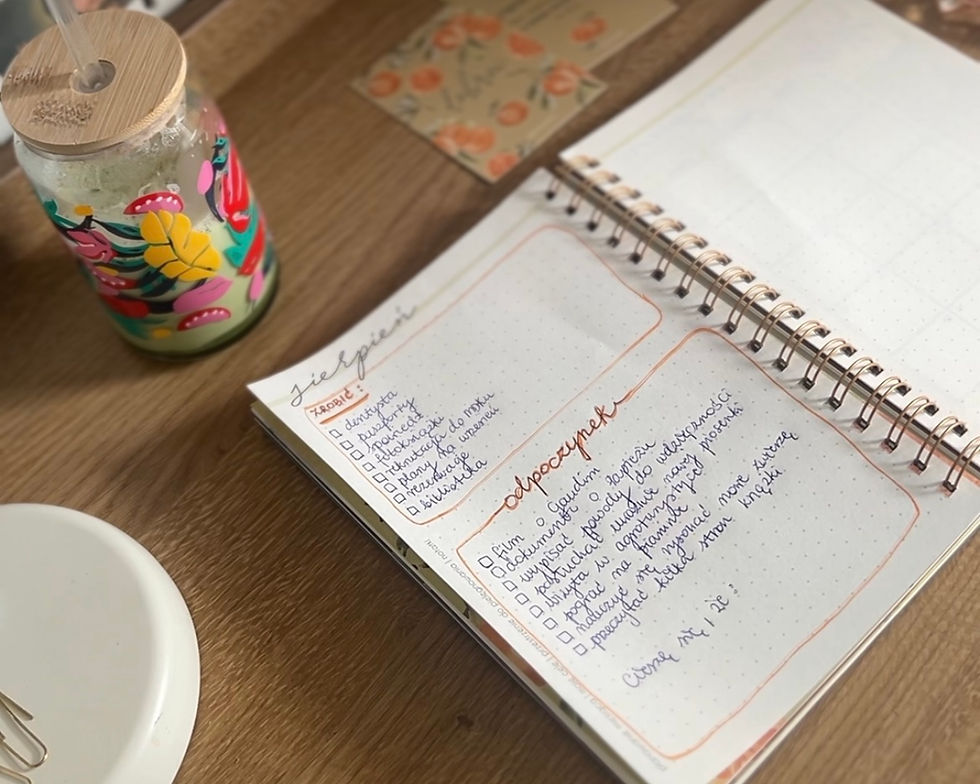 sierpień
ZROBIĆ:
dentysta
paszporty
spowiedź
fotoksiążki
rekrutacja do
plany na wrzesień
rezerwacje
biblioteka
odpoczynek
film o Gaudim
dokument o
wypisać powody do wdzięczności
posłuchać uważnie nowej piosenki
wizyta w agroturystyce
pograć na pianinie
nauczyć się rysować nowe zwierzę
przeczytać kilka stron książki
Cieszę się i